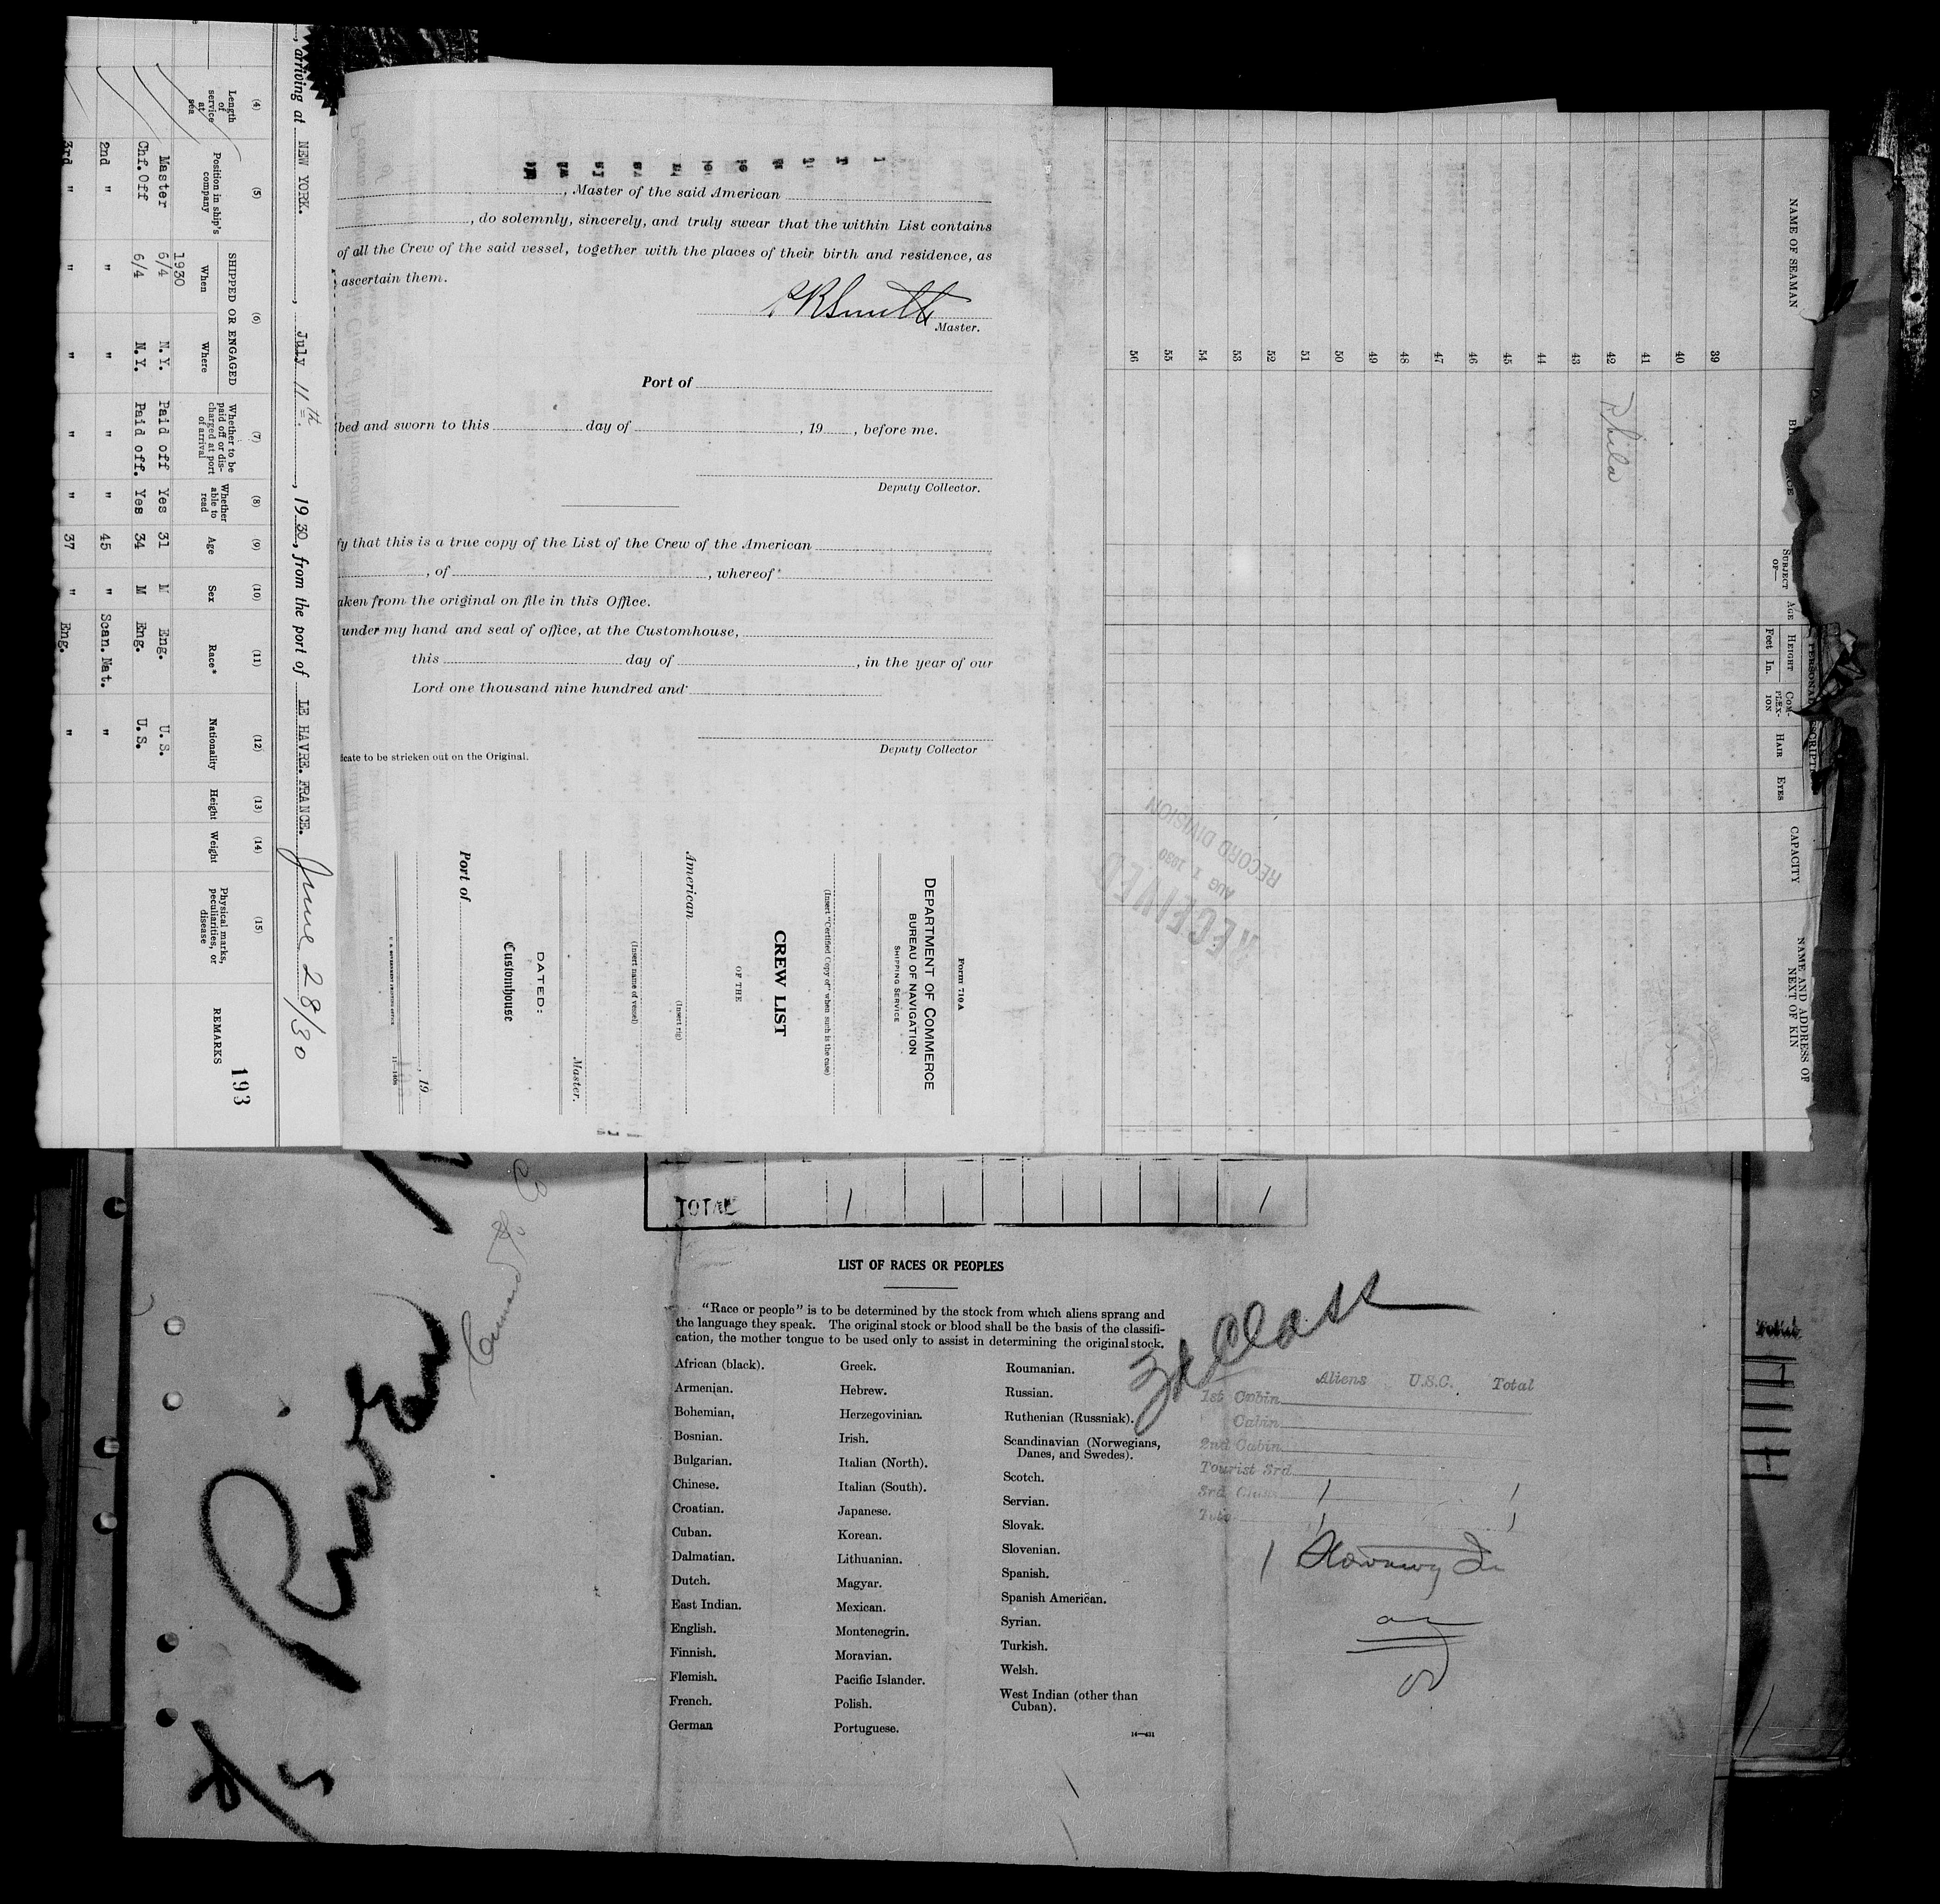 , arriving at NEW YORK. , July 11th , 19 30, from the port of LE HAVRE. FRANCE. June 28/30
193
(4) (5) (6) (7) (8) (9) (10) (11) (12) (13) (14) (15)
Length of service at sea
Position in ship's company
SHIPPED OR ENGAGED
When
Where
Whether to be paid off or discharged at port of arrival
Whether able to read
Age
Sex
Race*
Nationality
Height
Weight
Physical marks, peculiarities, or disease
REMARKS
1930
Master 6/4 N.Y. Paid off Yes 31 M Eng. U.S.
Chf.Off 6/4 N.Y. Paid off. Yes 34 M Eng. U.S.
2nd " " " " " 45 " Scan.Nat. "
3rd " " " " " 37 " Eng. "
, Master of the said American
, do solemnly, sincerely, and truly swear that the within List contains
of all the Crew of the said vessel, together with the places of their birth and residence, as
ascertain them.
Smith
Master.
Port of
bed and sworn to this day of , 19 , before me.
Deputy Collector.
fy that this is a true copy of the List of the Crew of the American
, of , whereof
aken from the original on file in this Office.
under my hand and seal of office, at the Customhouse,
this day of , in the year of our
Lord one thousand nine hundred and
Deputy Collector
icate to be stricken out on the Original.
Form 710A
DEPARTMENT OF COMMERCE
BUREAU OF NAVIGATION
SHIPPING SERVICE
(Insert "Certified Copy of" when such is the case)
CREW LIST
OF THE
(Insert rig)
American
(Insert name of vessel)
Master.
DATED:
Customhouse
Port of
, 19
NAME OF SEAMAN
SUBJECT OF—
AGE
HEIGHT
Feet In.
COMPLEXION
HAIR
EYES
CAPACITY
NAME AND ADDRESS OF NEXT OF KIN
39
40
41
42 Phila
43
44
45
46
47
48
49
50
51
52
53
54
55
56
RECEIVED
AUG 7 1930
RECORD DIVISION
TOTAL 1 1
LIST OF RACES OR PEOPLES
"Race or people" is to be determined by the stock from which aliens sprang and
the language they speak. The original stock or blood shall be the basis of the classifi-
cation, the mother tongue to be used only to assist in determining the original stock.
African (black).
Armenian.
Bohemian,
Bosnian.
Bulgarian.
Chinese.
Croatian.
Cuban.
Dalmatian.
Dutch.
East Indian.
English.
Finnish.
Flemish.
French.
German
Greek.
Hebrew.
Herzegovinian.
Irish.
Italian (North).
Italian (South).
Japanese.
Korean.
Lithuanian.
Magyar.
Mexican.
Montenegrin.
Moravian.
Pacific Islander.
Polish.
Portuguese.
Roumanian.
Russian.
Ruthenian (Russniak).
Scandinavian (Norwegians,
Danes, and Swedes).
Scotch.
Servian.
Slovak.
Slovenian.
Spanish.
Spanish American.
Syrian.
Turkish.
Welsh.
West Indian (other than
Cuban).
3d Class
Aliens U.S.C. Total
1st Cabin
Cabin
2nd Cabin
Tourist 3rd
3rd Class 1 1
1 1
1 Stowaway